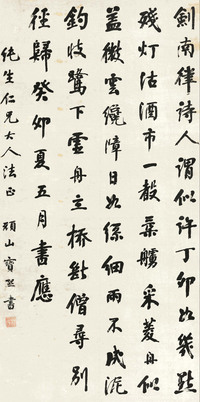 劍南律詩人謂似許丁卯如幾點
殘灯沽酒市一聲柔艣采菱舟似
蓋微雲纔障日如絲細雨不成泥
釣收鷺下虛舟立橋斷僧尋別
徑歸癸卯夏五月書應
純生仁兄大人法正 頑山寶熙書